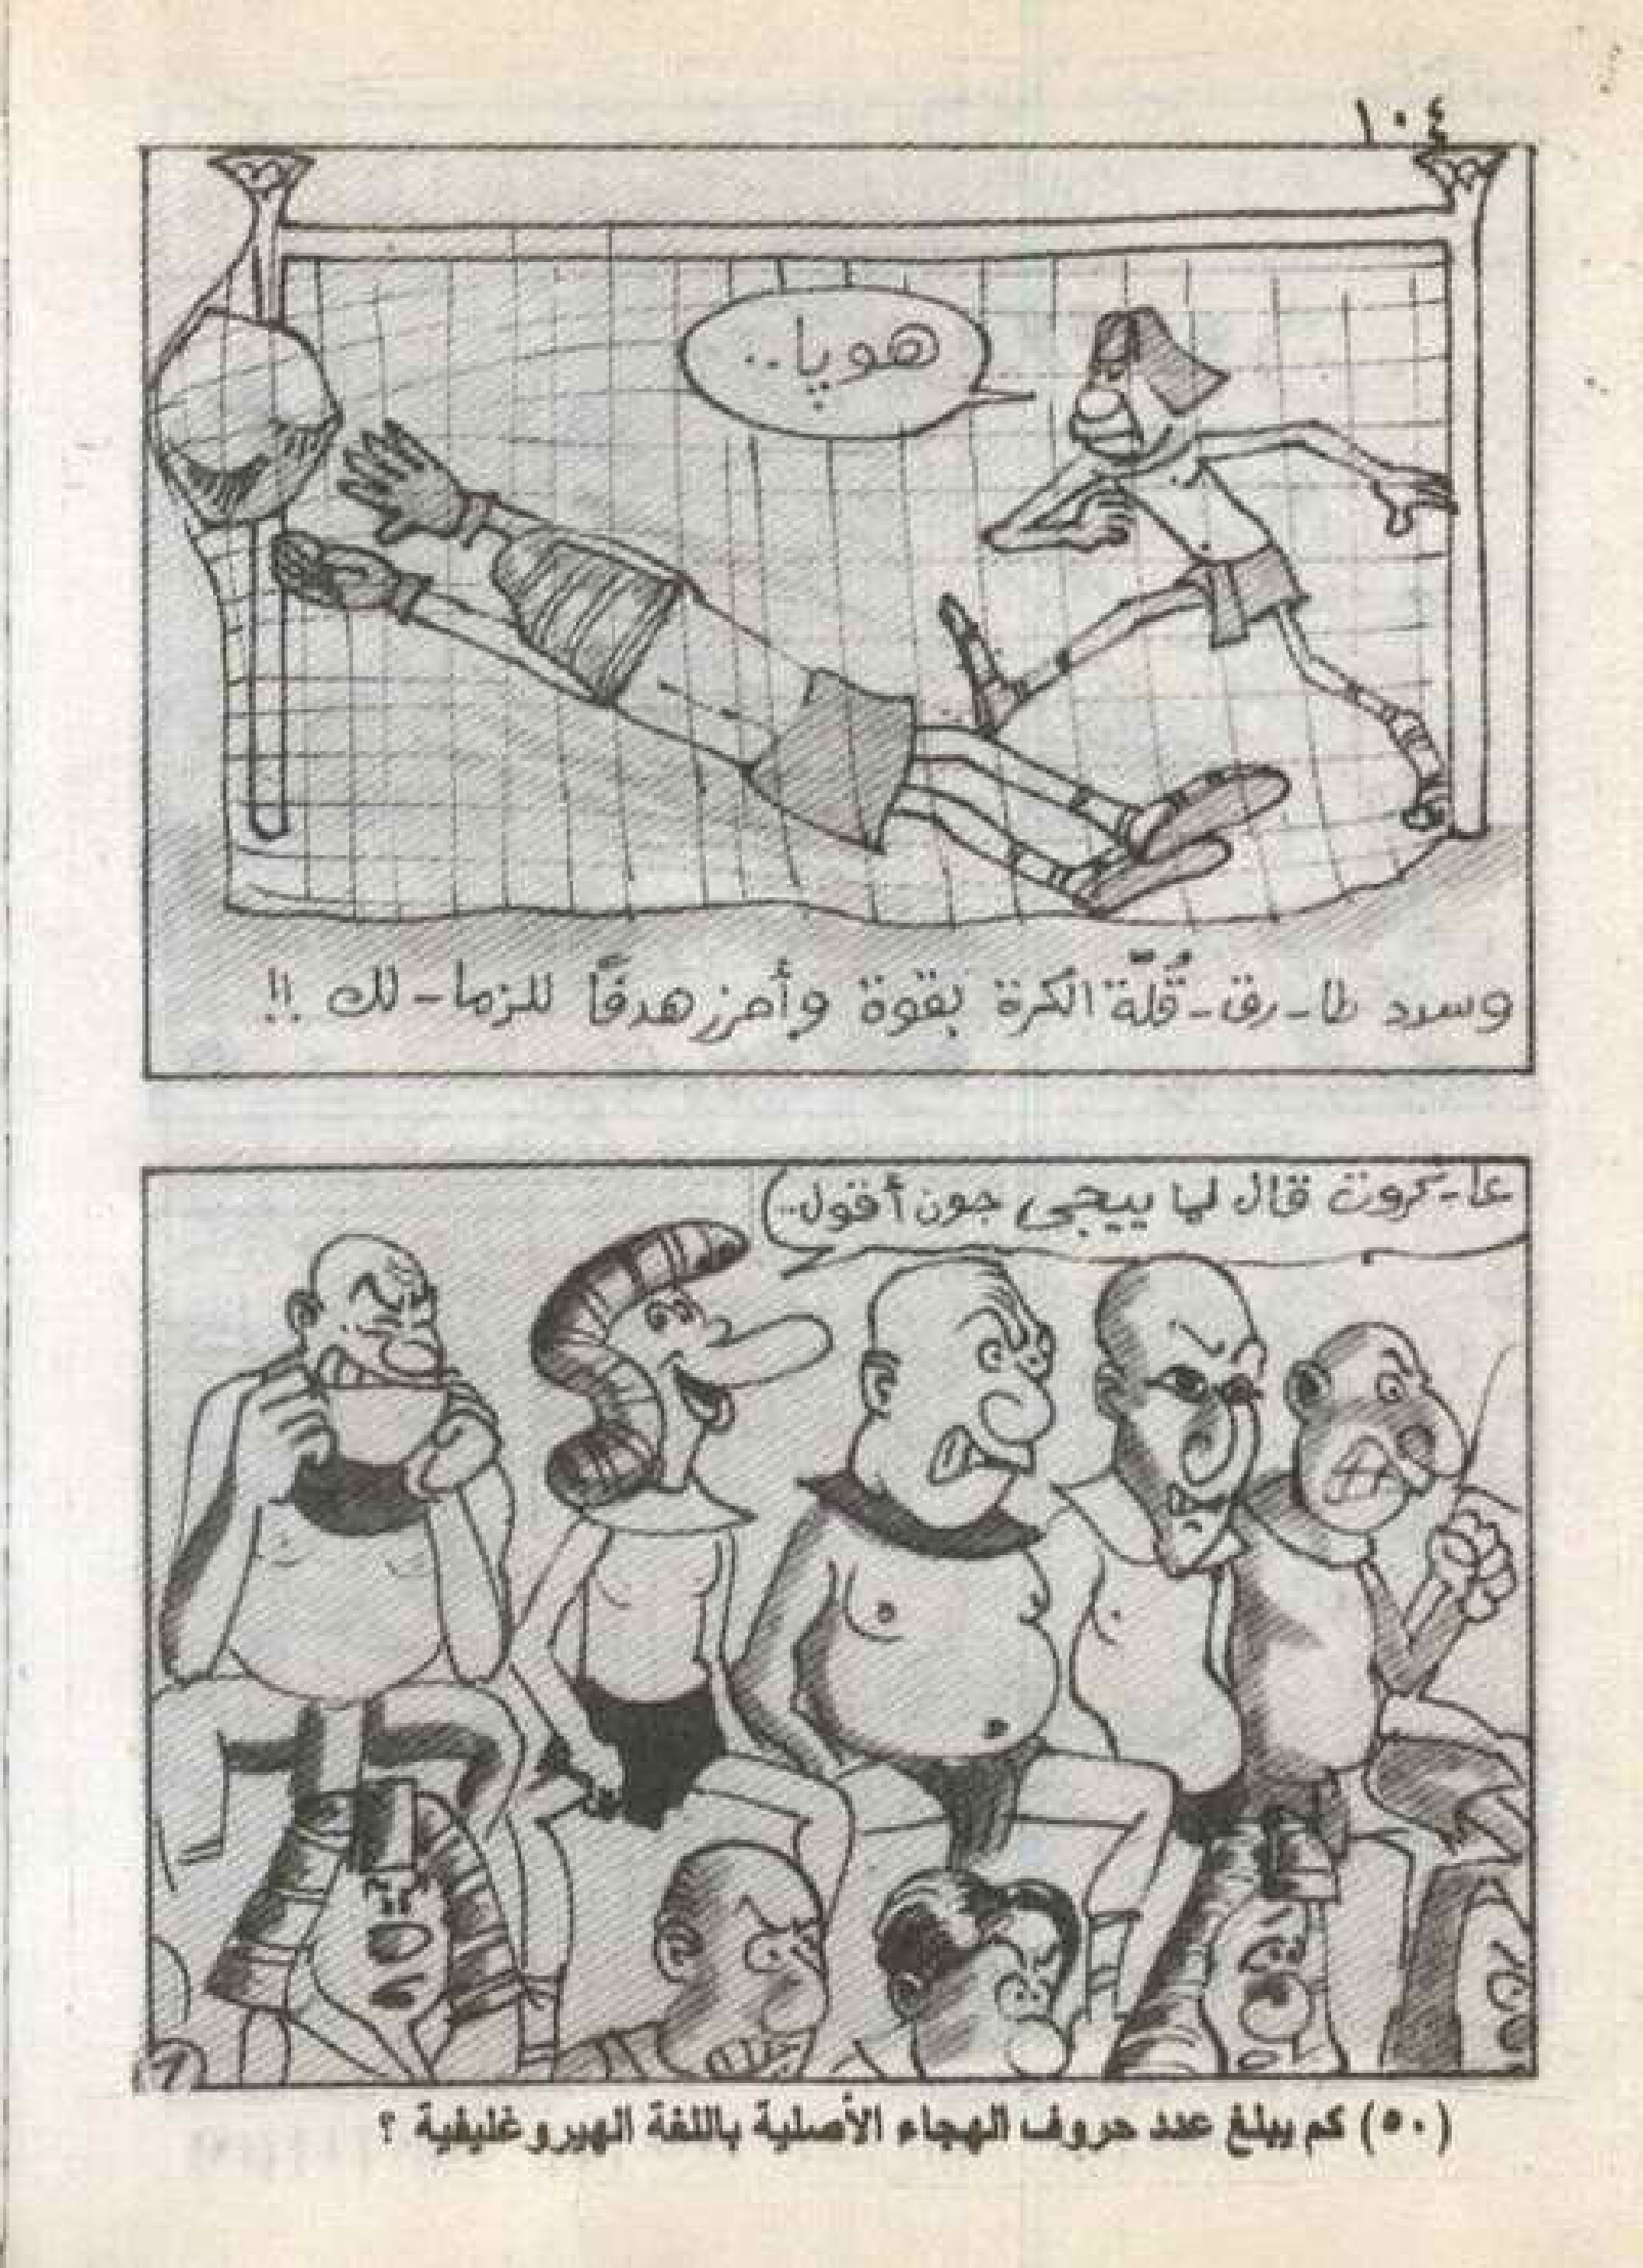 ١٠٤
هوپا..
وسدد طا-رق-قُلّة الكرة بقوة وأحرز هدفًا للزما-لك !!
عا-كرون قال لما ييجى جون أقول..
(٥٠) كم يبلغ عدد حروف الهجاء الأصلية باللغة الهيروغليفية ؟